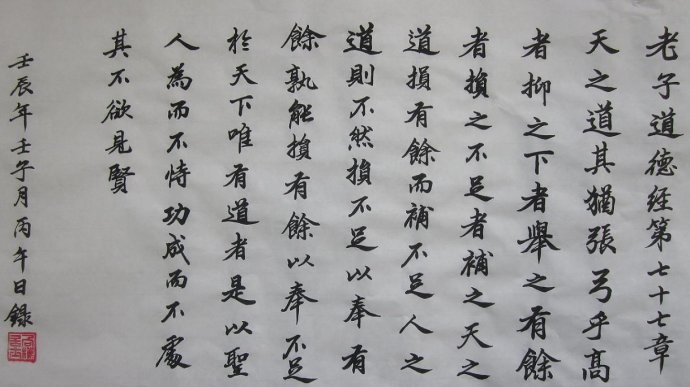 老子道德经第七十七章
天之道其猶張弓乎高
者抑之下者舉之有餘
者損之不足者補之天之
道損有餘而補不足人之
道則不然損不足以奉有
餘孰能損有餘以奉不足
於天下唯有道者是以聖
人為而不恃功成而不處
其不欲見賢
壬辰年壬子月丙午日錄